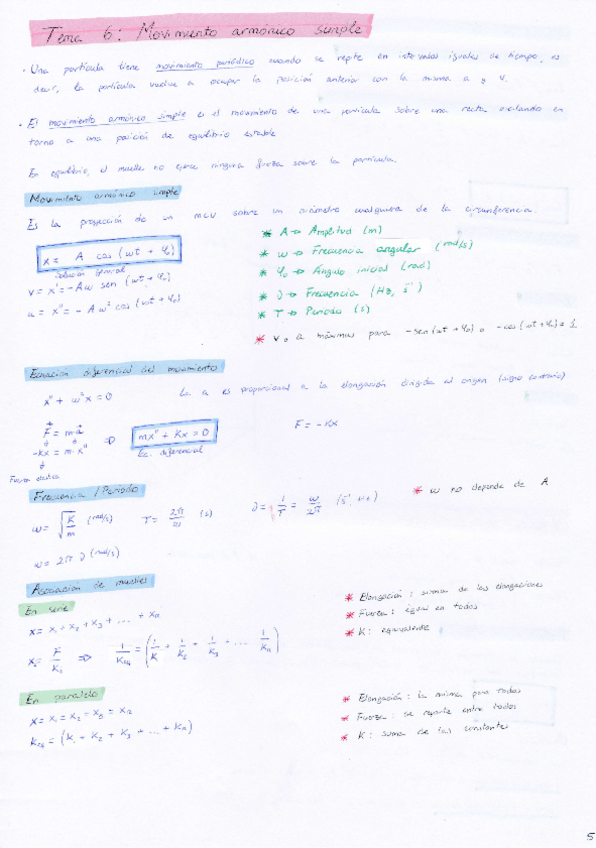 Tema 6: Movimiento armónico simple
· Una partícula tiene movimiento periódico cuando se repite en intervalos iguales de tiempo, es
decir, la partícula vuelve a ocupar la posición anterior con la misma a y v.
· El movimiento armónico simple es el movimiento de una partícula sobre una recta oscilando en
torno a una posición de equilibrio estable
En equilibrio, el muelle no ejerce ninguna fuerza sobre la partícula.
Movimiento armónico simple
Es la proyección de un MCU sobre un diámetro cualquiera de la circunferencia
x = A cos (ωt + φ₀)
solución general
v = x' = -Aω sen (ωt + φ₀)
a = x'' = -Aω² cos (ωt + φ₀)
* A → Amplitud (m)
* ω → Frecuencia angular (rad/s)
* φ₀ → Ángulo inicial (rad)
* ν → Frecuencia (Hz, s⁻¹)
* T → Periodo (s)
* v o a máximas para -sen(ωt + φ₀) o -cos(ωt + φ₀) = 1
Ecuación diferencial del movimiento
x'' + ω²x = 0
La a es proporcional a la elongación dirigida al origen (signo contrario)
F = m·a
-Kx = m·x'' ⇒ mx'' + Kx = 0
Ec. diferencial
F = -Kx
Fuerza elástica
Frecuencia / Periodo
ω = √(K/m) (rad/s)
T = 2π/ω (s)
ν = 1/T = ω/2π (s⁻¹, Hz)
* ω no depende de A
ω = 2πν (rad/s)
Asociación de muelles
En serie
x = x₁ + x₂ + x₃ + ... + xₙ
1/Keq = (1/K₁ + 1/K₂ + 1/K₃ + ... 1/Kₙ)
* Elongación: suma de las elongaciones
* Fuerza: igual en todos
* K: equivalente
En paralelo
x = x₁ = x₂ = x₃ = xₙ
Keq = (K₁ + K₂ + K₃ + ... + Kₙ)
* Elongación: la misma para todos
* Fuerza: se reparte entre todos
* K: suma de las constantes
5